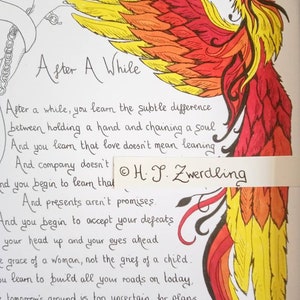 After A While
After a while, you learn the subtle difference
between holding a hand and chaining a soul
And you learn that love doesn't mean leaning
And company doesn't
© H. P. Zwerdling
nd you begin to learn that
And presents aren't promises
And you begin to accept your defeats
your head up and your eyes ahead
e grace of a woman, not the grief of a child
ou learn to build all your roads on today,
tomorrow's ground is too uncertain for plans